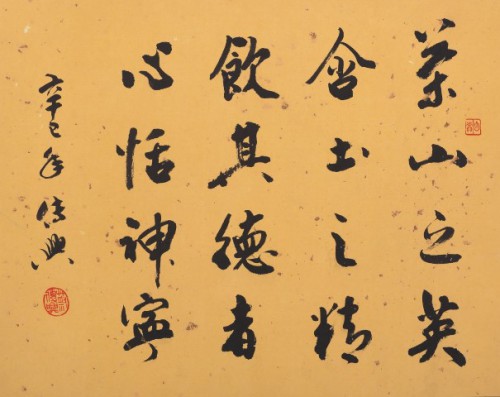 茶山之英
含土之精
飲其德者
心恬神寧
辛巳年興